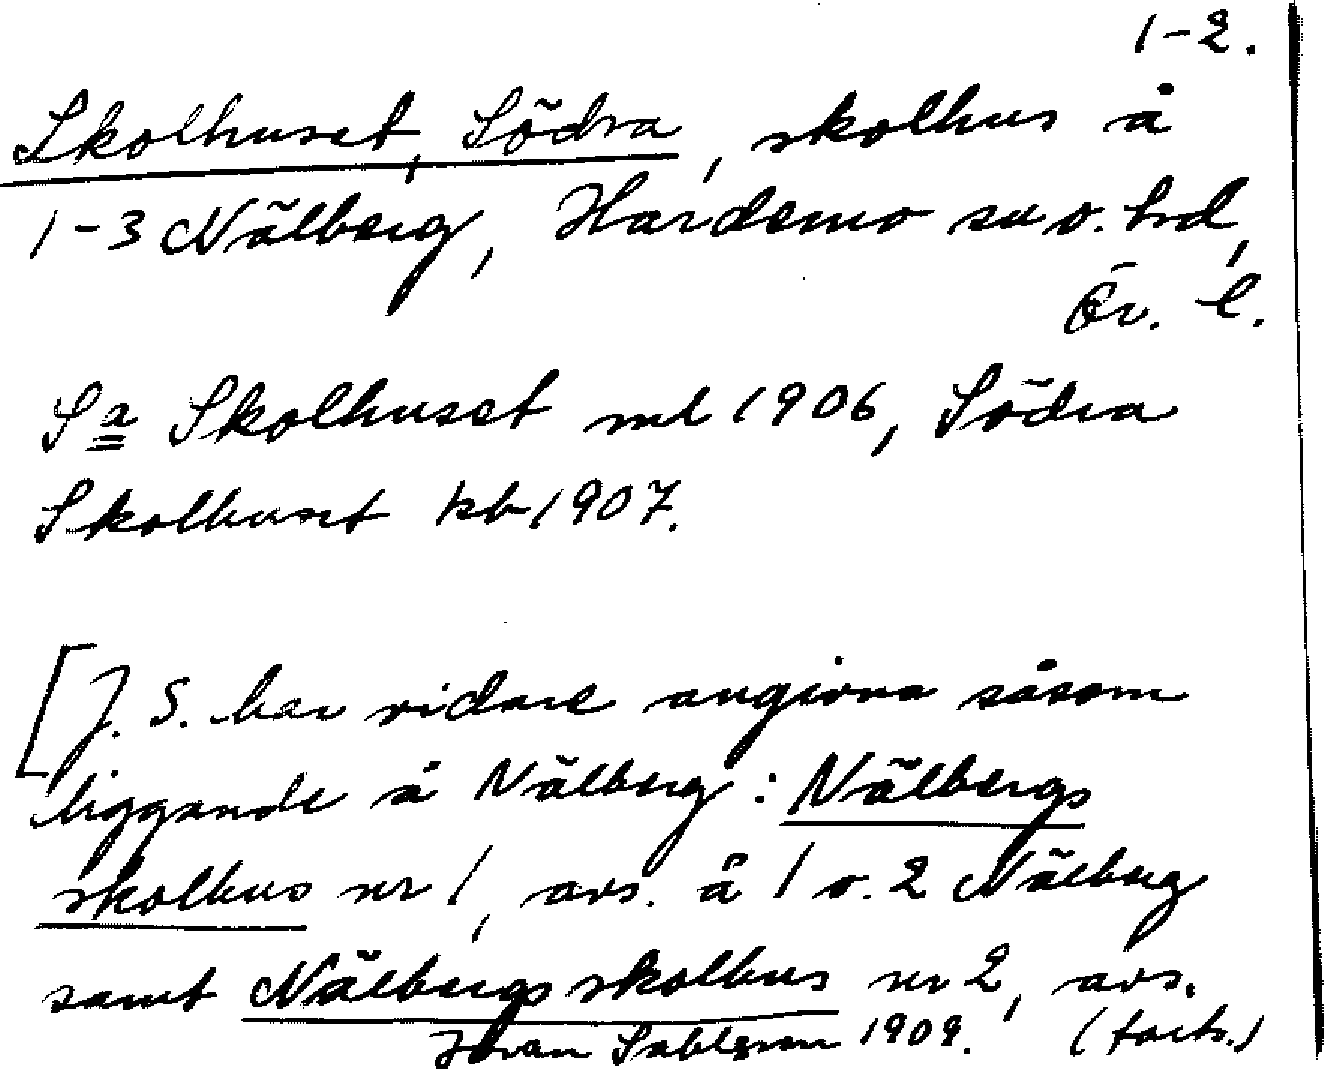 1-2.
Skolhuset, Södra, skolhus å
1-3 Nälberg, Hardemo sn o. hd,
Ör. l.
Sa Skolhuset ml 1906, Södra
Skolhuset kb 1907.
[J. S. har vidare angivna såsom
liggande å Nälberg: Nälbergs
skolhus nr 1, avs. å 1 o. 2 Nälberg
samt Nälbergs skolhus nr 2, avs.
Jöran Sahlgren 1909. (forts.)